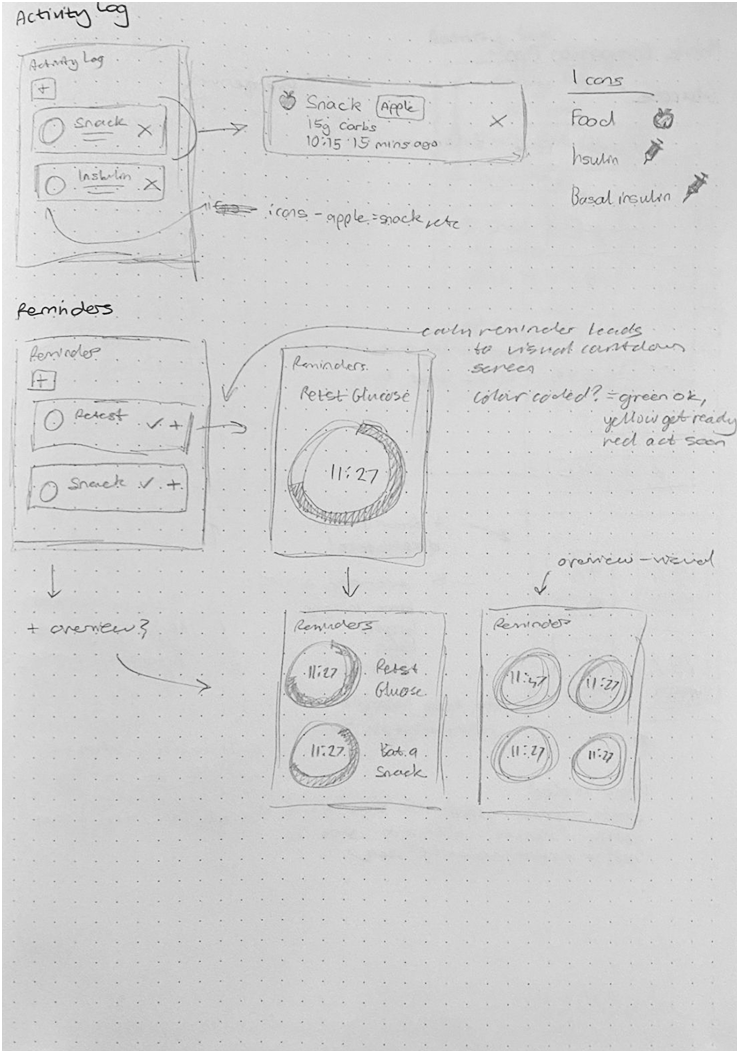 Activity Log
Activity Log
+
Snack X
Insulin X
Snack Apple X
15g carbs
10:15 15 mins ago
Icons
Food
Insulin
Basal insulin
icons - apple = snack, etc
Reminders
Reminders
+
Retest ✓ +
Snack ✓ +
Reminders
Retst Glucose
11:27
each reminder leads
to visual countdown
screen
colour coded? = green ok,
yellow get ready
red act soon
+ overview?
Reminders
11:27 Retst
Glucose
11:27 Eat a
Snack
overview - visual
Reminders
11:27
11:27
11:27